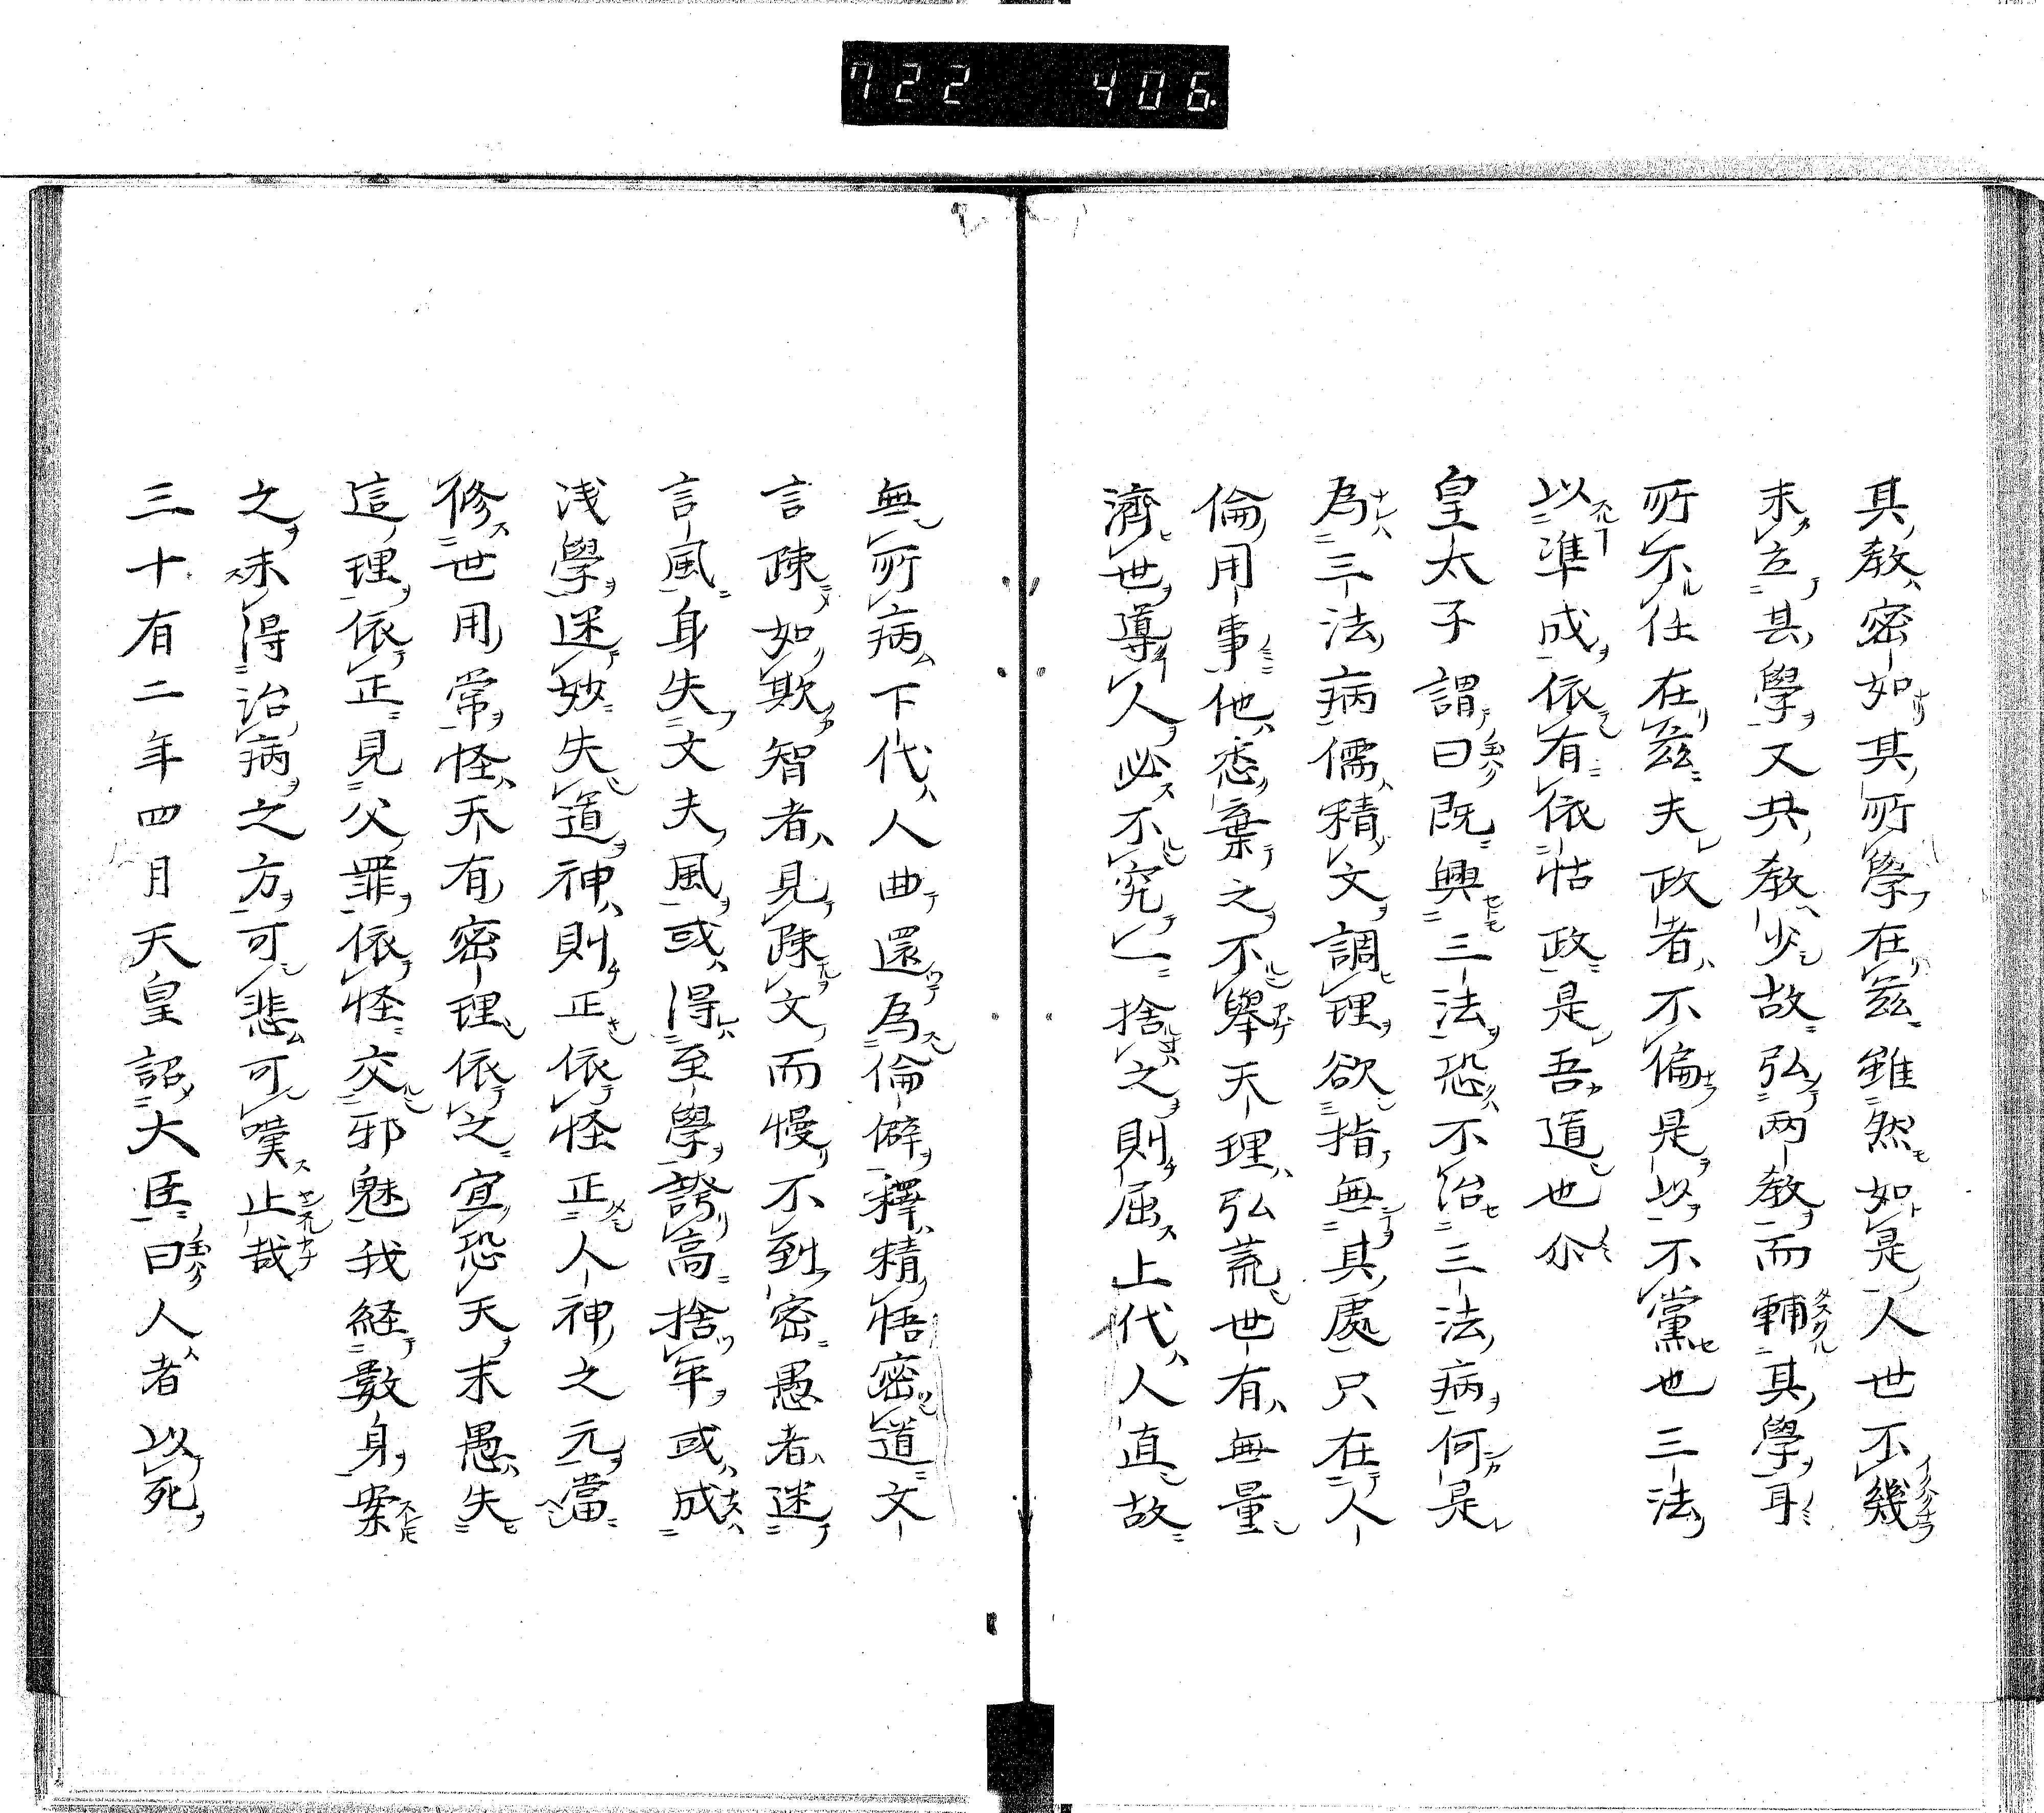 722 406
其教密如其所學在茲雖然如是人世不幾
未立其學又共教少故弘兩教而輔其學耳
所不仕在茲夫政者不偏是以不黨也三法
以準成依有依怙政是吾道也尒
皇太子謂曰既興三法恐不治三法病何是
為三法病儒積文調理欲指無其處只在人
倫用事他悉棄之不舉天理弘荒世有無量
濟世導人必不究一捨之則屈上代人直故
無所病下代人曲還為倫僻釋精悟密道文
言踈如欺智者見踈文而慢不到密愚者迷
言風身失文夫風或得至學誇高捨年或成
浅學迷妙失道神則正依怪正人神之元當
修世用常怪天有密理依之宜恐天末愚失
這理依正見父罪依怪交邪魅我経數身案
之未得治病之方可悲可嘆止哉
三十有二年四月天皇詔大臣曰人者以死